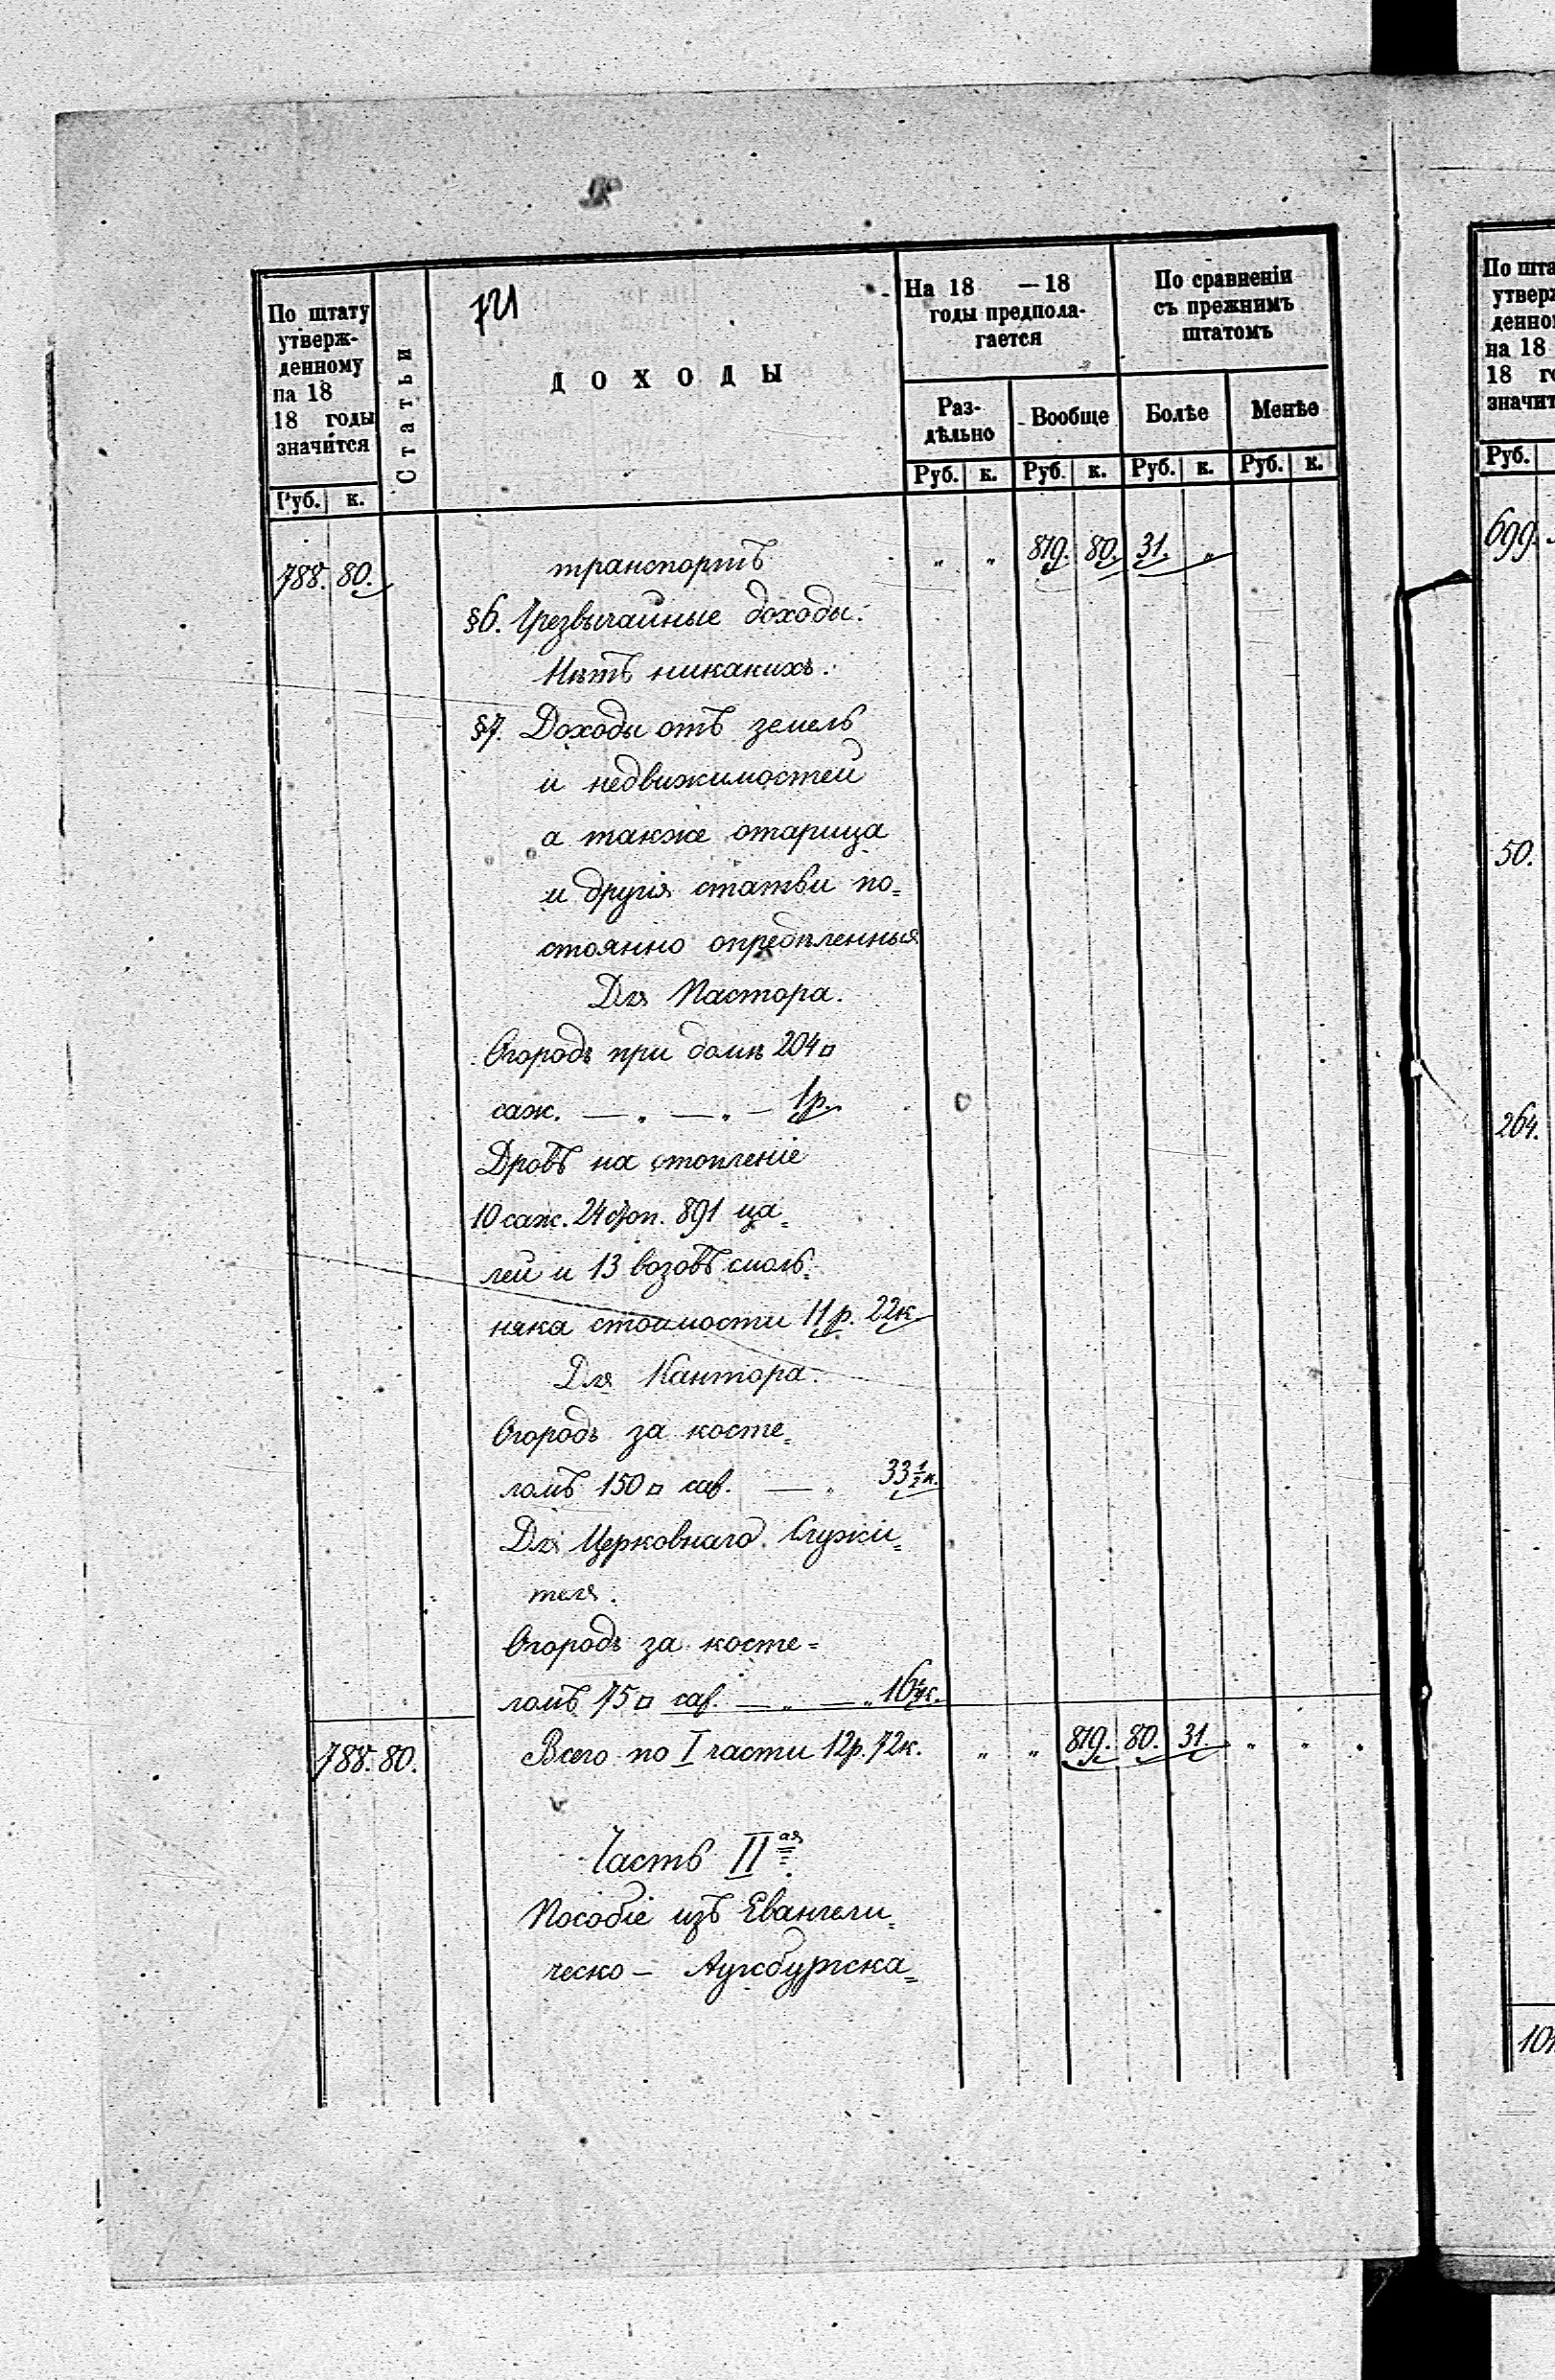 721
По штату
утверж-
денному
на 18
18 годы
значится
Статьи
ДОХОДЫ
На 18 — 18
годы предпола-
гается
По сравненіи
съ прежнимъ
штатомъ
Раз-
дѣльно
Вообще
Болѣе
Менѣе
Руб. к.
Руб. к. Руб. к. Руб. к. Руб. к.
788. 80. транспортъ „ „ 819. 80. 31. „
§6. Чрезвычайные доходы:
Нѣтъ никакихъ.
§7. Доходы отъ земель
и недвижимостей
а также
и другія статьи по=
стоянно опредѣленныя
Для Пастора.
Огородъ при домѣ 204□
саж. — „ — „ — 1р.
Дровъ на отопленіе
10 саж. 24 фоп. 891 ца=
лей и 13 возовъ смоль=
няка стоимости 11р. 22к.
Для Кантора.
Огородъ за косте=
ломъ 150□ саж. — „ 33½к.
Для Церковнаго Служи=
теля.
Огородъ за косте=
ломъ 75□ саж. — „ — „ 16½к.
788. 80. Всего по I части 12р. 72к. „ „ 819. 80. 31. „ „ „
Часть II ая
Пособіе изъ Евангели=
ческо — Аугсбургска=
По шта
утверж
денно
на 18
18 го
значит
Руб.
699.
50.
264.
101